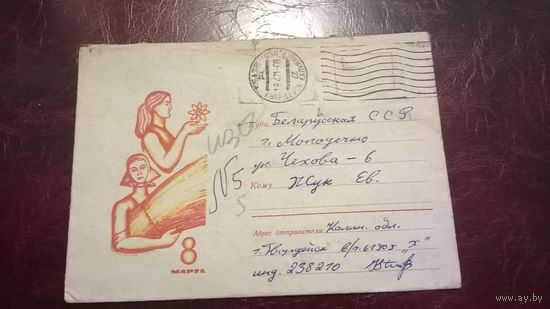 Куда Беларусская ССР
г. Молодечно
ул. Чехова - 6
Кому Жук Ев.
изо
N5
5
8
МАРТА
Адрес отправителя Калин. обл.
г. Гвардейск в/ч. 61708 "Х"
инд. 238210
www.ay.by